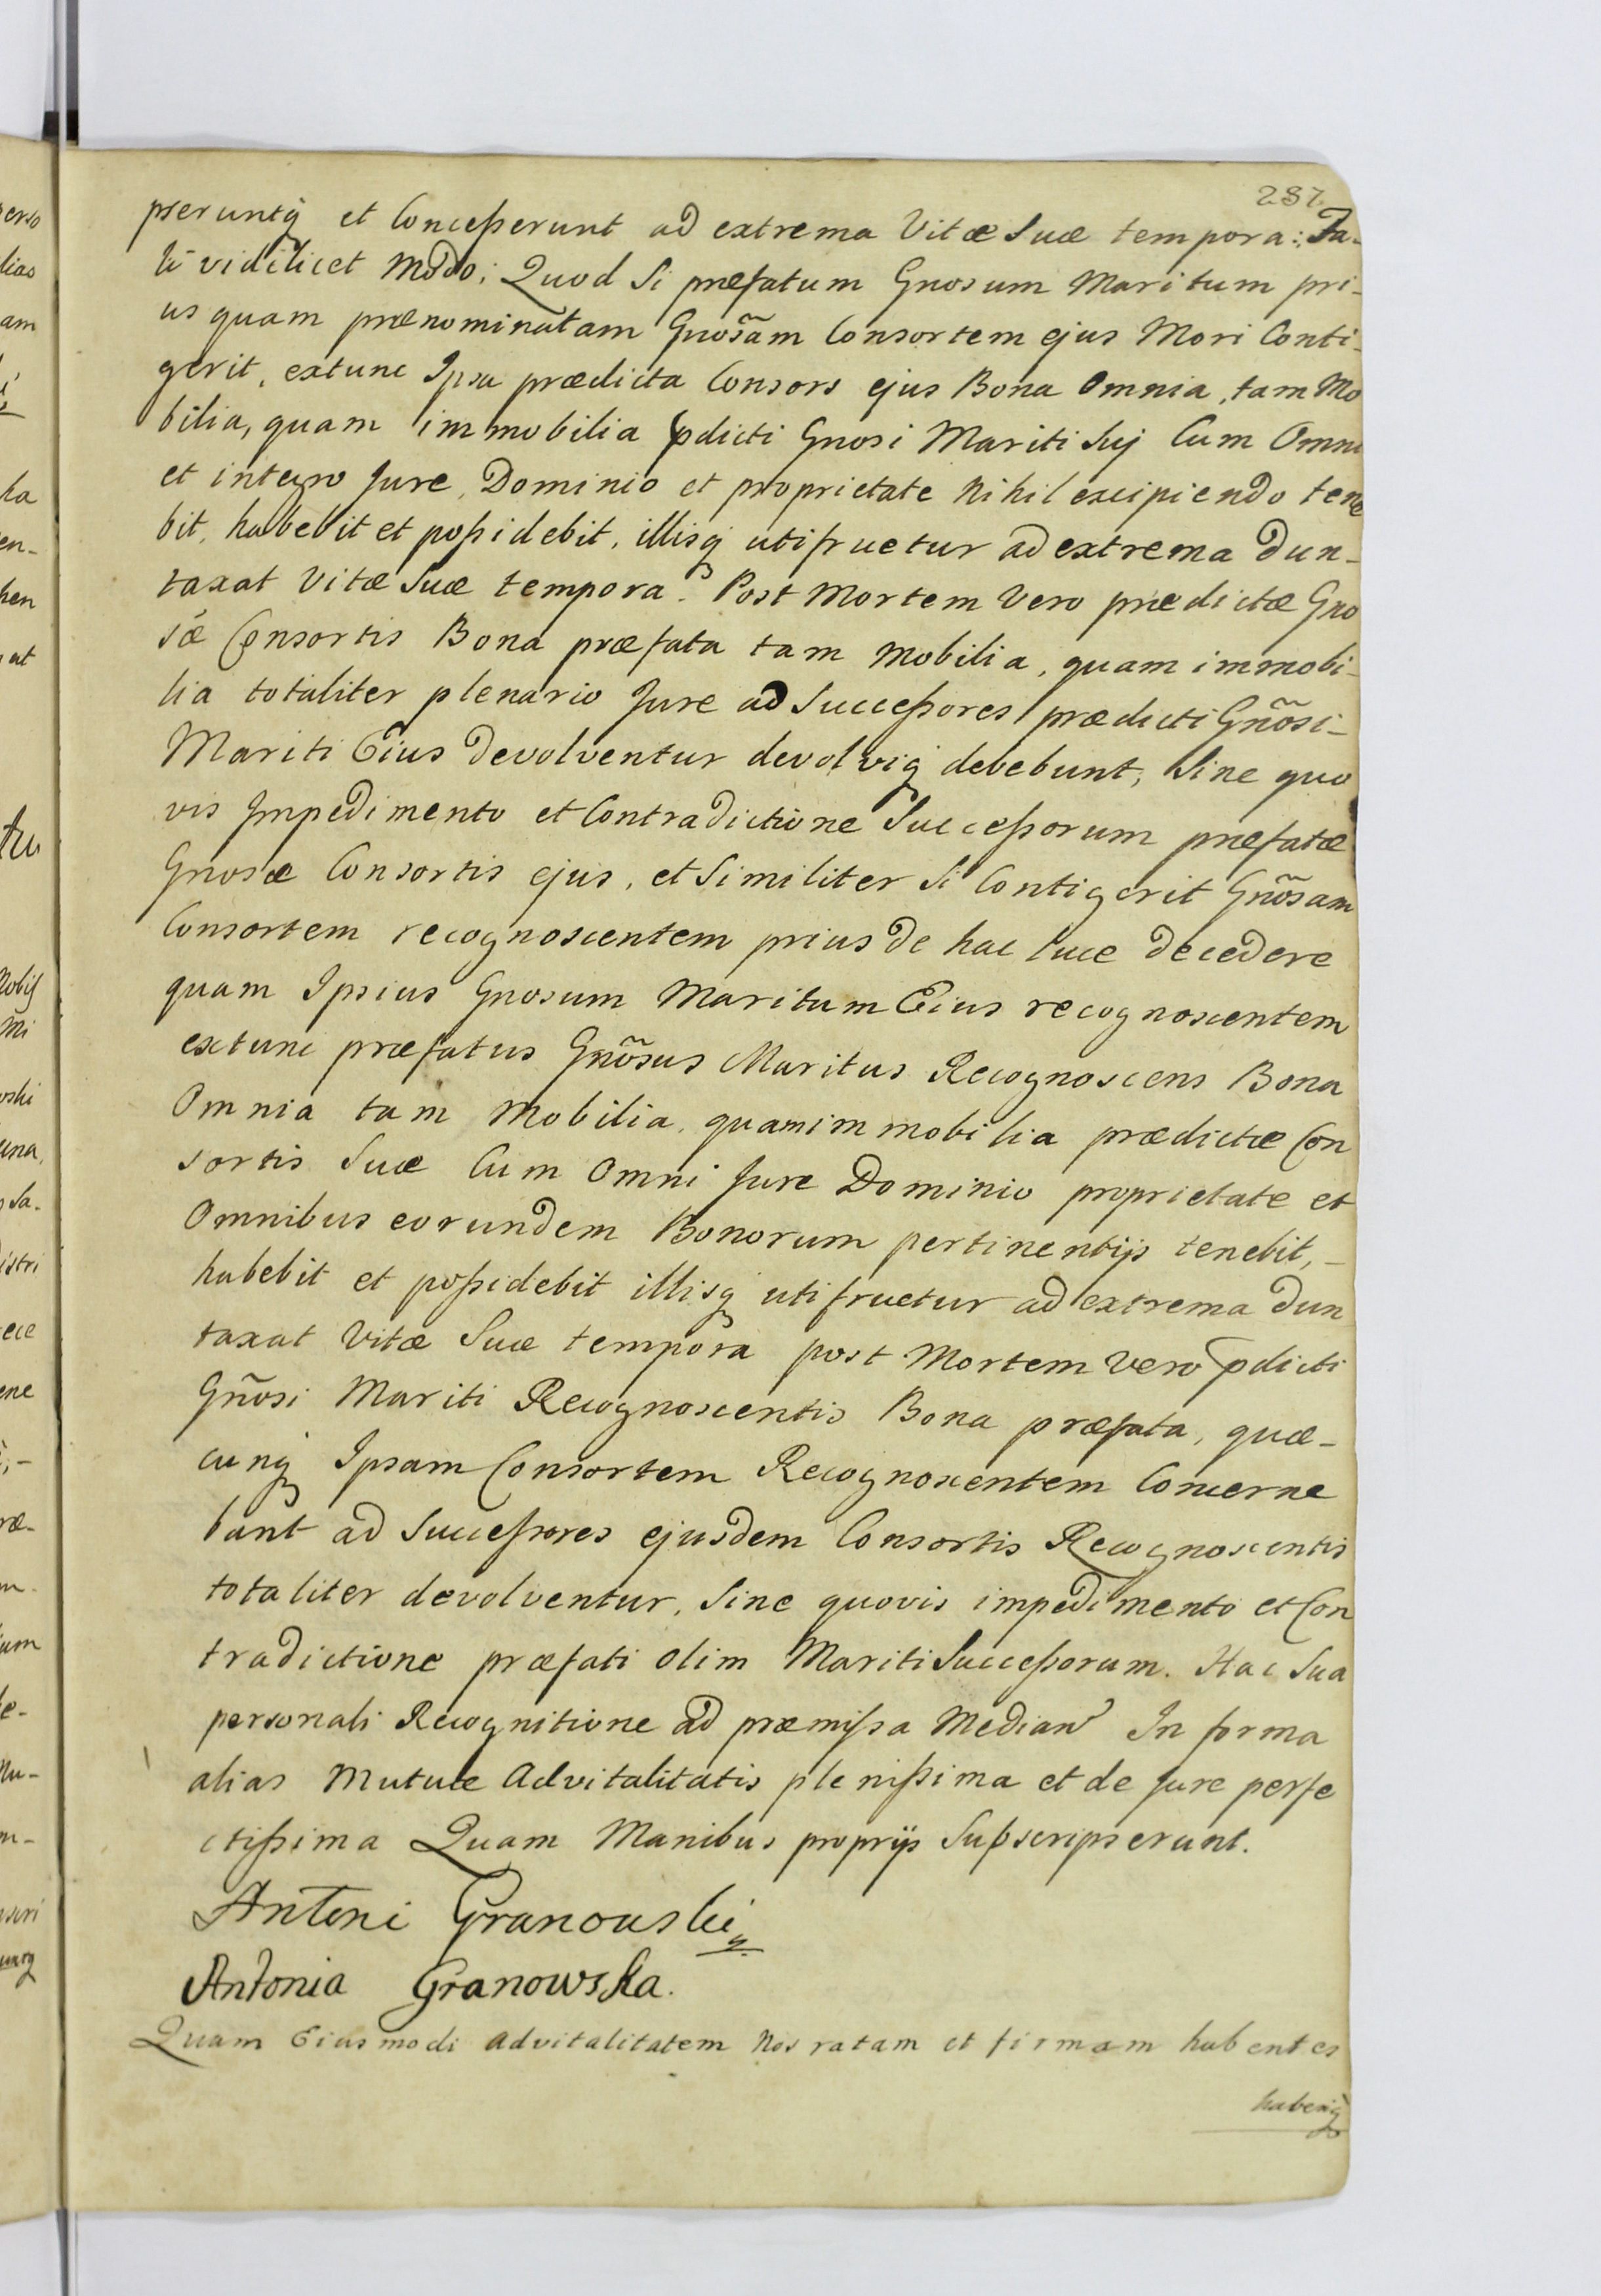 287
pseruntq̃ et Conceßerunt ad extrema Vitæ Suæ tempora: Ta-
li videlicet Modo: Quod Si præfatum Gnosum Maritum pri-
us quam prænominatam Gnos̃am Consortem ejus Mori Conti-
gerit, extunc Ipsa prædicta Consors ejus Bona Omnia, tam Mo
bilia, quam immobilia pdicti Gnosi Mariti Suj Cum Omni
et integro Jure, Dominio et proprietate Nihil excipiendo tene
bit, habebit et poßidebit, illisq utifruetur ad extrema Dun-
taxat Vitæ Suæ tempora. Post Mortem Vero prædictæ Gno
sæ Consortis Bona præfata tam Mobilia, quam immobi-
lia totaliter plenario Jure ad Succeßores prædicti Gños̃i-
Mariti Eius Devolventur devolviq debebunt, Sine quo
vis Impedimento et Contradictione Succeßorum præfatæ
Gnosæ Consortis ejus, et Similiter Si Contigerit Gños̃am
Consortem recognoscentem prius de hac luce decedere
quam Ipsius Gnosum Maritum Eius recognoscentem
extunc præfatus Gños̃us Maritus Recognoscens Bona
Omnia tam Mobilia, quam immobilia prædictæ Con
sortis Suæ Cum Omni Jure Dominio proprietate et
Omnibus eorundem Bonorum pertinentijs tenebit, -
habebit et poßidebit illisq utifruetur ad extrema Dun
taxat Vitæ Suæ tempora post Mortem Vero pdicti
Gñosi Mariti Recognoscentis Bona præfata, quæ-
cunq Ipsam Consortem Recognoscentem Concerne
bant ad Succeßores ejusdem Consortis Recognoscentis
totaliter devolventur, Sine quovis impedimento et Con
tradictione præfati olim Mariti Succeßorum. Hac Sua
personali Recognitione ad præmißa Median̄ In forma
alias Mutuæ Advitalitatis plenißima et de Jure perfe
ctißima Quam Manibus proprijs Subscripserunt.
Antoni Granowski
Antonia Granowska.
Quam Eiusmodi Advitalitatem Nos ratam et firmam habentes
haberiq̃